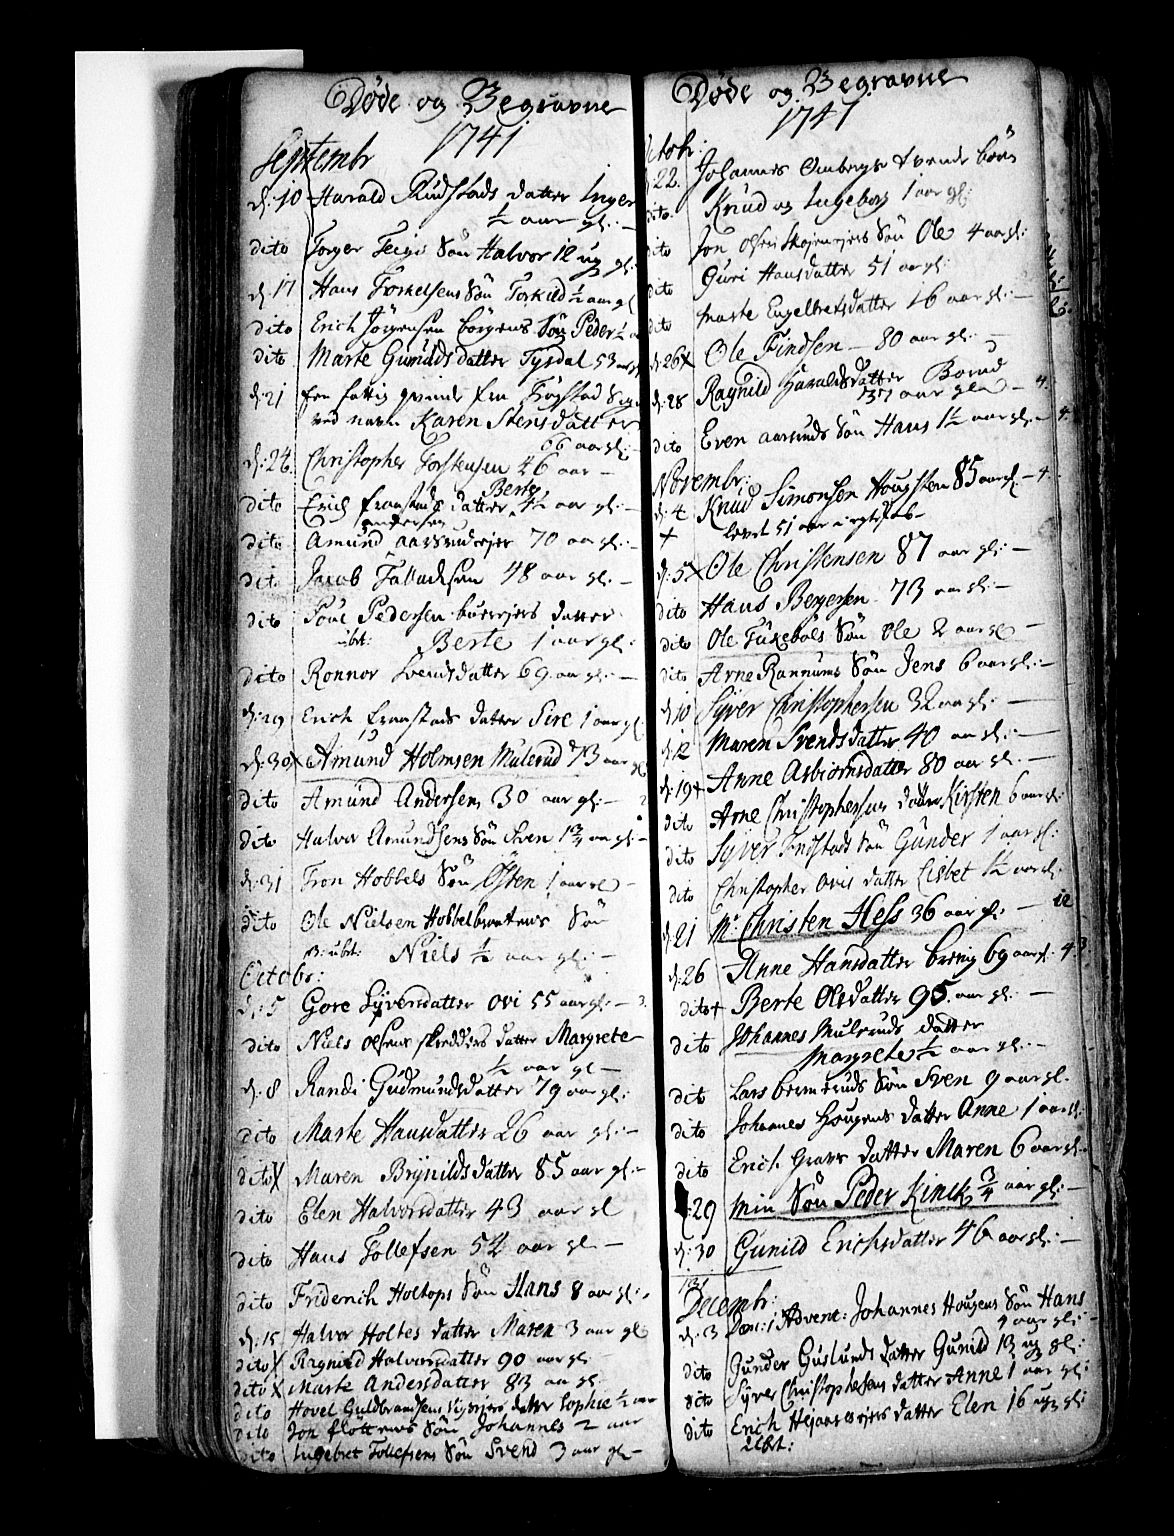 Døde og Begravne
1741
Septembr
d. 10 Harald Rudstads datter Inger
½ aar gl:
dito Torger Teigs Søn Halvor 12 ug gl:
d. 17 Hans Torkelsens Søn Torkild ½ aar gl
dito Erich Jørgensen Søn Peder ½ a
dito Marte Gunildsdatter Tysdal 53 aar gl
d. 21 een fattig qvinde fra Trøgstad Sogn
ved navn Karen Stensdatter
66 aar gl:
d: 24 Christopher Torstensen 46 aar
dito Erich fraastads datter Berte 4½ aar gl:
andersen
dito Amund aarsrudejer 70 aar gl:
dito Jacob Talladsen 48 aar gl:
dito Poul Pedersen datter
ibt: Berte 1 aar gl:
dito Ronnor Svendsdatter 69 aar gl:
d. 29 Erich fraastads datter Sire 1 aar gl
d: 30 x Amund Holmsen Mulerud 73 aar gl
dito Amund Andersen 30 aar gl:
dito Halvor Amundsens Søn Sven 1¾ aar gl:
d. 31 Tron Hobbels Søn Østen 1 aar gl
dito Ole Nielsen Hobbelbraatens Søn
Niels ½ aar gl:
Octobr:
d. 5 Gore Syversdatter Ovi 55 aar gl: 3.
dito Niels Olsens skredders datter Margrete
½ aar gl
d. 8 Randi Gudmundsdatter 79 aar gl:
dito Marte Hansdatter 26 aar gl:
dito X Maren Brynildsdatter 85 aar gl:
dito Elen Halvorsdatter 43 aar gl
dito Hans Tollefsen 54 aar gl
dito Friderich Holtops Søn Hans 8 aar gl:
d. 15 Halvor Holtes datter Maren 3 aar gl
dito X Ragnild Halvorsdatter 90 aar gl
dito X Marte Andersdatter 83 aar gl
dito Hovel Guldbrandsens datter Sophie ½ aar
dito Jon fløttens Søn Johannes 2 aar
dito Ingebret Tollefsens Søn Svend 3 aar gl
Døde og Begravne
1741.
Octobr:
d: 22. Johannes Ombergs tvende børn
dito Knud og Ingeborg 1 aar gl:
dito Jon Olsen Søn Ole 4 aar gl:
dito Guri Hansdatter 51 aar gl:
dito Marte Engelbretsdatter 16 aar gl:
d: 26 x Ole Findsen 80 aar gl:
d. 28 Ragnild Haraldsdatter Borud
37 aar gl: 4.
dito Even aarsruds Søn Hans 1½ aar gl: 4.
Novembr:
d. 4 Knud Simonsen Hougsten 85 aar gl: 4
+ levet 51 aar i egteskab
d. 5 x Ole Christensen 87 aar gl:
dito Hans Bergersen 73 aar gl:
dito Ole Tuxebøls Søn Ole 2 aar gl
dito Arne Rannums Søn Jens 6 aar gl:
d. 10 Syver Christophersen 32 aar gl:
d. 12 Maren Svendsdatter 40 aar gl:
d: 19 + Anne Asbiørnsdatter 80 aar gl:
dito Arne Christophersens datter Kirsten 6 aar gl:
dito Syver Indstads Søn Gunder 1 aar gl:
dito Christopher Ovis datter Lisbet 1½ aar gl:
d. 21 Mr Christen Hess 36 aar gl: 12
d: 26 Anne Hansdatter 69 aar gl: 4 3
dito + Berte Olsdatter 95 aar gl:
dito Johannes Mulruds datter
Margrete ½ aar gl:
dito Lars Søn Sven 9 aar gl.
dito Johannes Hougens datter Anne 1 aar gl:
dito Erich Gravs datter Maren 6 aar gl:
d. 29 min Søn Peder Kinck ¾ aar gl:
d. 30 Gunild Erichsdatter 46 aar gl:
Decembr:
d. 3 Dom: 1 Advent: Johannes Hougens Søn Hans
aar gl:
dito Gunder Guslunds datter Gunild 13 ug gl:
dito Syver Christophersens datter Anne 1 aar gl:
dito Erich datter Elen 16 ug gl: